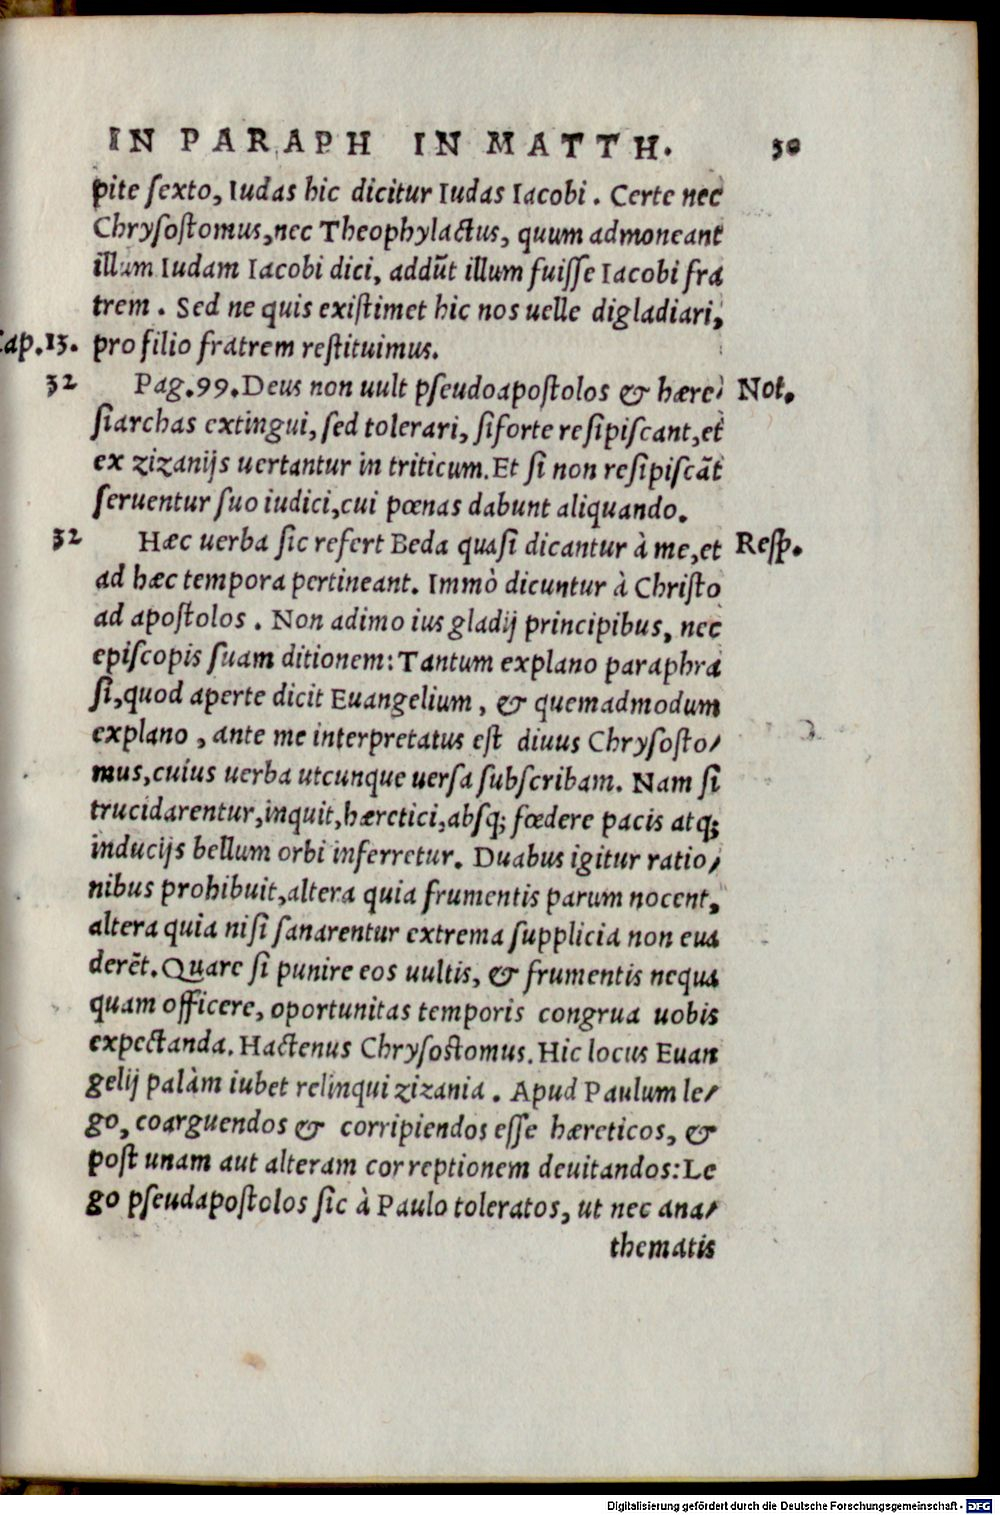 IN PARAPH IN MATTH. 30
pite sexto, Iudas hic dicitur Iudas Iacobi. Certe nec
Chrysostomus, nec Theophylactus, quum admoneant
illum Iudam Iacobi dici, addūt illum fuisse Iacobi fra
trem. Sed ne quis existimet hic nos uelle digladiari,
Cap. 13. pro filio fratrem restituimus.
32 Pag. 99. Deus non uult pseudoapostolos & hære/ Not.
siarchas extingui, sed tolerari, si forte resipiscant, et
ex zizanijs uertantur in triticum. Et si non resipiscāt
seruentur suo iudici, cui pœnas dabunt aliquando.
32 Hæc uerba sic refert Beda quasi dicantur à me, et Resp.
ad hæc tempora pertineant. Immò dicuntur à Christo
ad apostolos. Non adimo ius gladij principibus, nec
episcopis suam ditionem: Tantum explano paraphra
si, quod aperte dicit Euangelium, & quemadmodum
explano, ante me interpretatus est diuus Chrysosto/
mus, cuius uerba utcunque uersa subscribam. Nam si
trucidarentur, inquit, hæretici, absq; fœdere pacis atq;
inducijs bellum orbi inferretur. Duabus igitur ratio/
nibus prohibuit, altera quia frumentis parum nocent,
altera quia nisi sanarentur extrema supplicia non eua
derēt. Quare si punire eos uultis, & frumentis nequa
quam officere, oportunitas temporis congrua uobis
expectanda. Hactenus Chrysostomus. Hic locus Euan
gelij palàm iubet relinqui zizania. Apud Paulum le/
go, coarguendos & corripiendos esse hæreticos, &
post unam aut alteram correptionem deuitandos: Le
go pseudapostolos sic à Paulo toleratos, ut nec ana/
thematis
Digitalisierung gefördert durch die Deutsche Forschungsgemeinschaft - DFG